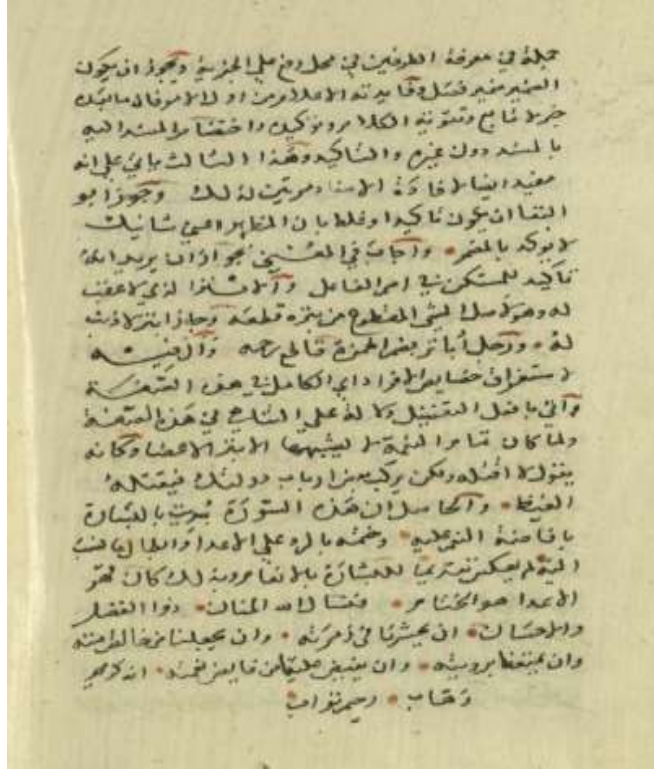 جملة في معرفة الطرفين في محل رفع على الخبرية ويجوز ان يكون
الضمير ضمير فصل وفايدته الاعلام من اول الامر فان مابعده
خبر لا تابع وتقوية الكلام وتوكيده واختصاص المسند اليه
بالمسند دون غيره والتاكيد وهذا الثالث يأتي على انه
مفيد ايضا لافادة مرتين لذلك وجوز ابو
البقا ان يكون تاكيدا وغلط بان المظهر اعني شانئك
لا يوكد بالمضمر وأجاب في المغني بجواز انه يريد انه
تأكيد للمستكن في اسم الفاعل والابتر الذي لا عقب
له وهو في اصل الشي المقطوع من بتره قطعه وحمار ابتر لا ذنب
له ورجل أباتر بضم الهمزة قاطع رحمه وال فيه
لاستغراق خصايص الافراد اي الكامل في هذه الصفة
وأتى بافعل التفضيل دلالة على التناهي في هذه الصفة
ولما كان الابتر الاعضا وكانه
يقول لا اقتله ولكن من ارباب دولتك فيقتله
الغيظ والحاصل ان هذه السورة بديت بالبشارة
بافاضة النعم عليه وختمت بالرد على الاعدا وابطال مانسب
اليه لم يعكس تقديما للبشارة بالانعام وبذلك كان قهر
الاعدا هو الختام فنسال الله المنان ذوا الفضل
والاحسان ان يحشرنا في زمرته وان يجعلنا من خالص امته
وان يمتعنا برويته وان يفيض علينا من فايض نعمته انه كريم
وهاب رحيم تواب